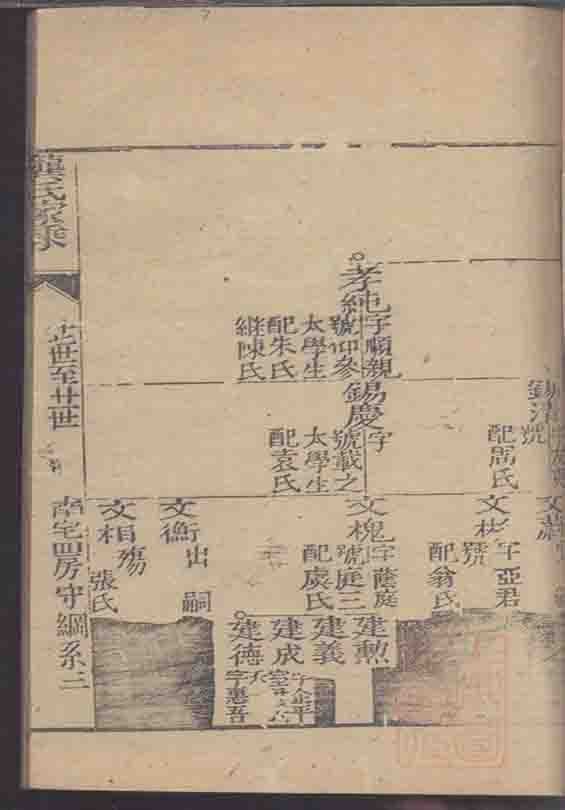 錫
號
配周氏
文
文彬 字亞君
號
配翁氏
孝純 字順親
號仰參
太學生
配朱氏
繼陳氏
錫慶 字
號載之
太學生
配袁氏
文槐 字蔭庭
號庭三
配虞氏
建勲
建義
建成 字金平
建德
字惠吾
文衡 出嗣
文相 殤
張氏
龔氏家乘
世至廿世
南宅四房守綱系三